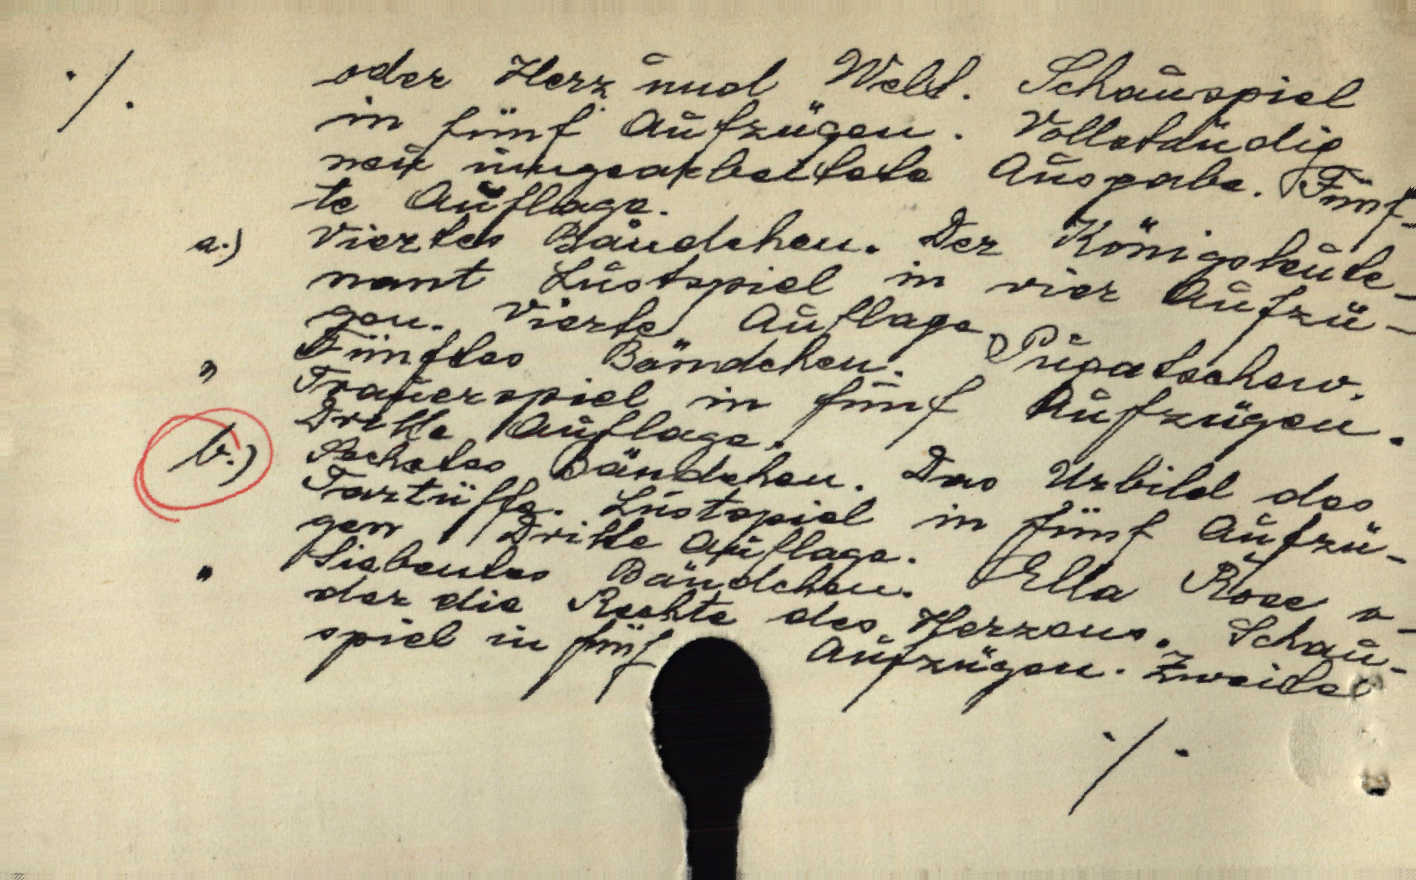 ./.
oder Herz und Welt. Schauspiel
in fünf Aufzügen. Vollständig
neu umgearbeitete Ausgabe. Fünf-
te Auflage.
a.) Viertes Bändchen. Der Königsleute-
nant Lustspiel in vier Aufzü-
gen. Vierte Auflage.
" Fünftes Bändchen. Pugatschew.
Trauerspiel in fünf Aufzügen.
Dritte Auflage.
b.) Sechstes Bändchen. Das Urbild des
Tartüffe. Lustspiel in fünf Aufzü-
gen Dritte Auflage.
" Siebentes Bändchen. Ella Rose o-
der die Rechte des Herzens. Schau-
spiel in fünf Aufzügen. Zweite
./.